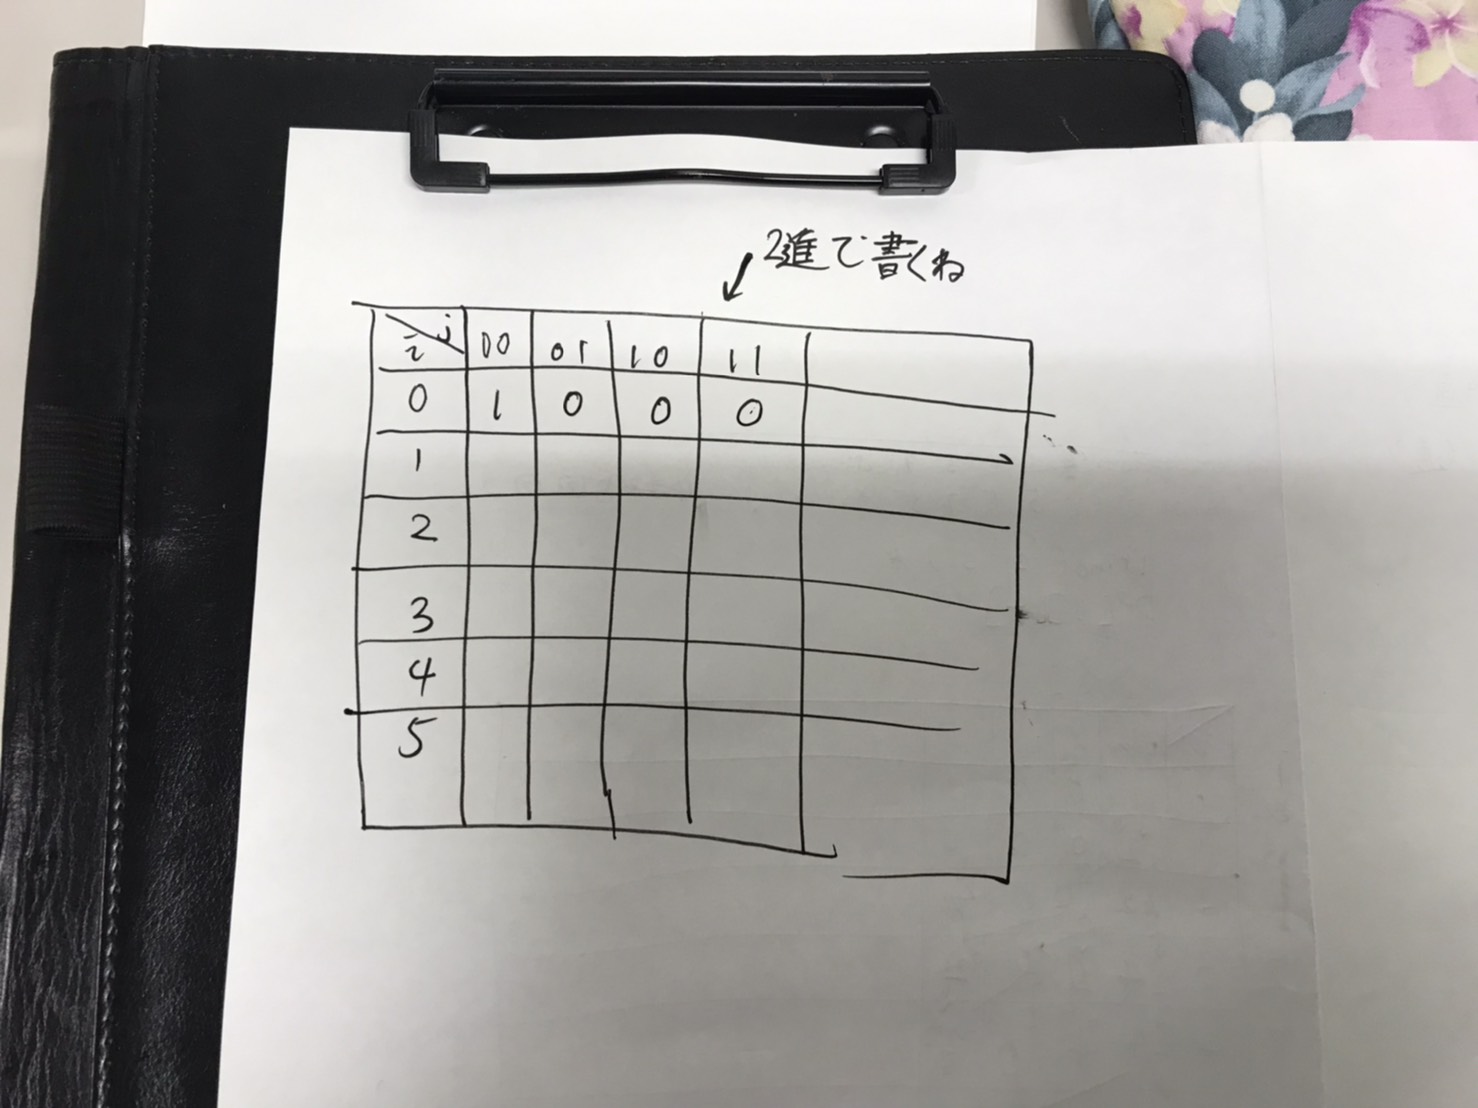 2進で書くね
i j 00 01 10 11
0 1 0 0 0
1
2
3
4
5